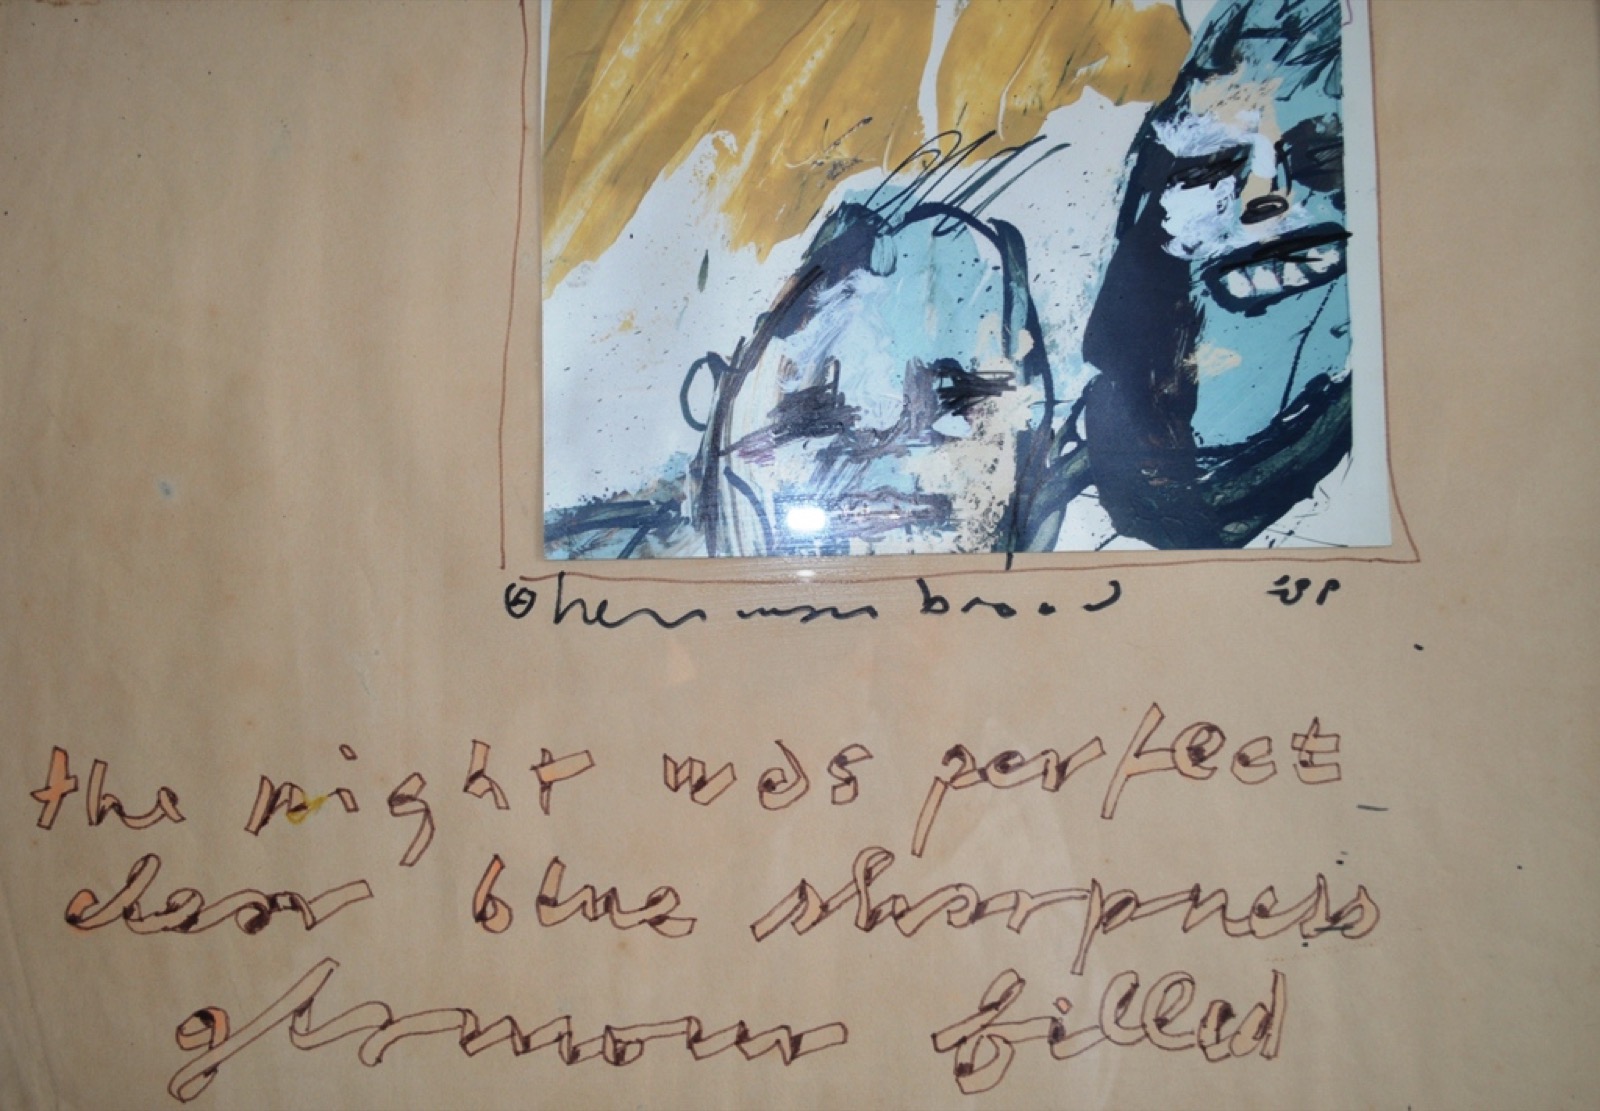 herman brood
the night was perfect
clear blue sharpness
glamour filled